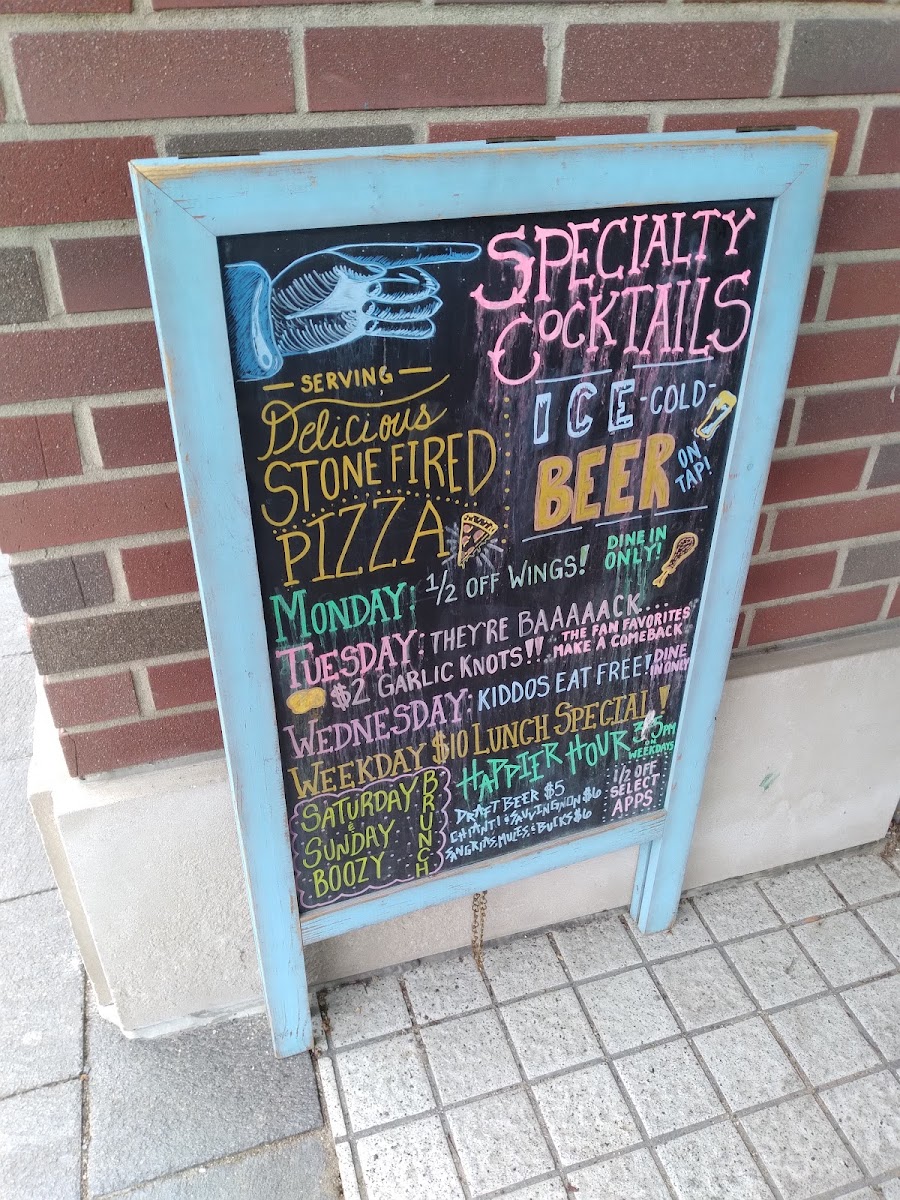 SPECIALTY
COCKTAILS
SERVING
Delicious
STONE FIRED
PIZZA
ICE -COLD-
BEER ON
TAP!
MONDAY: 1/2 OFF WINGS! DINE IN
ONLY!
TUESDAY: THEY'RE BAAAAACK...
$2 GARLIC KNOTS!! THE FAN FAVORITES
MAKE A COMEBACK
WEDNESDAY: KIDDOS EAT FREE! DINE
IN ONLY
WEEKDAY $10 LUNCH SPECIAL!
HAPPIER HOUR 3-5PM
ON
WEEKDAYS
SATURDAY
&
SUNDAY
BOOZY
BRUNCH
DRAFT BEER $5
CHIANTI & SAUVINGNON $6
SANGRIAS, MULES, & BUCKS $6
1/2 OFF
SELECT
APPS